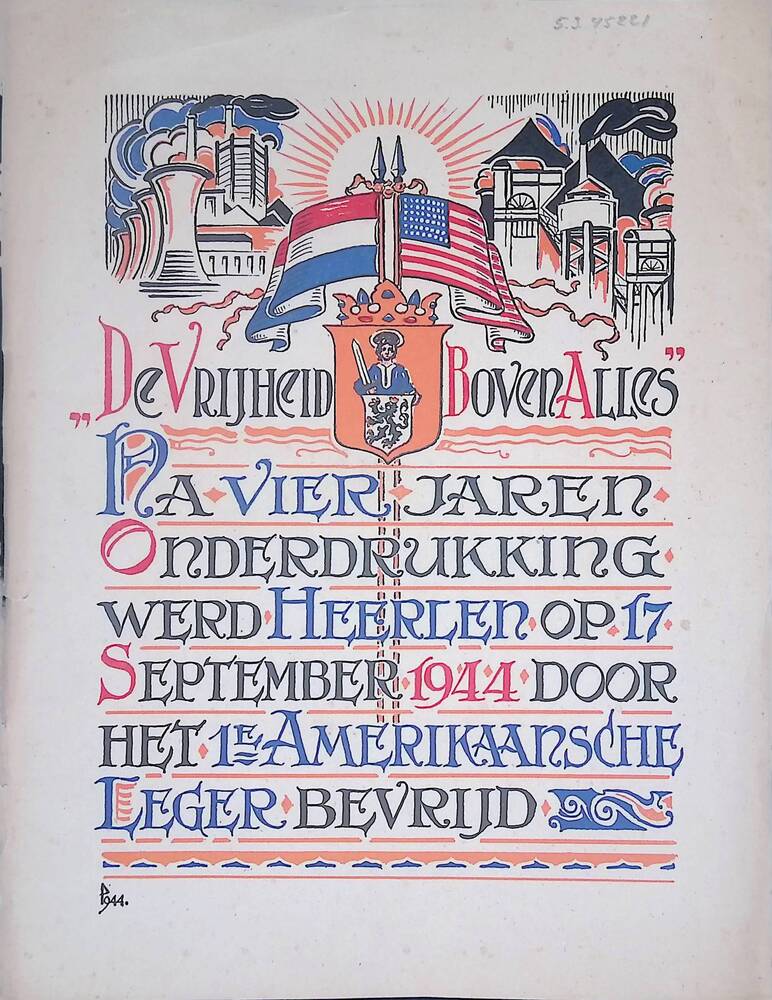 5.3 45221
„De Vrijheid Boven Alles”
Na vier jaren
Onderdrukking
werd Heerlen op 17
September 1944 door
het 1E Amerikaansche
Leger bevrijd
1944.